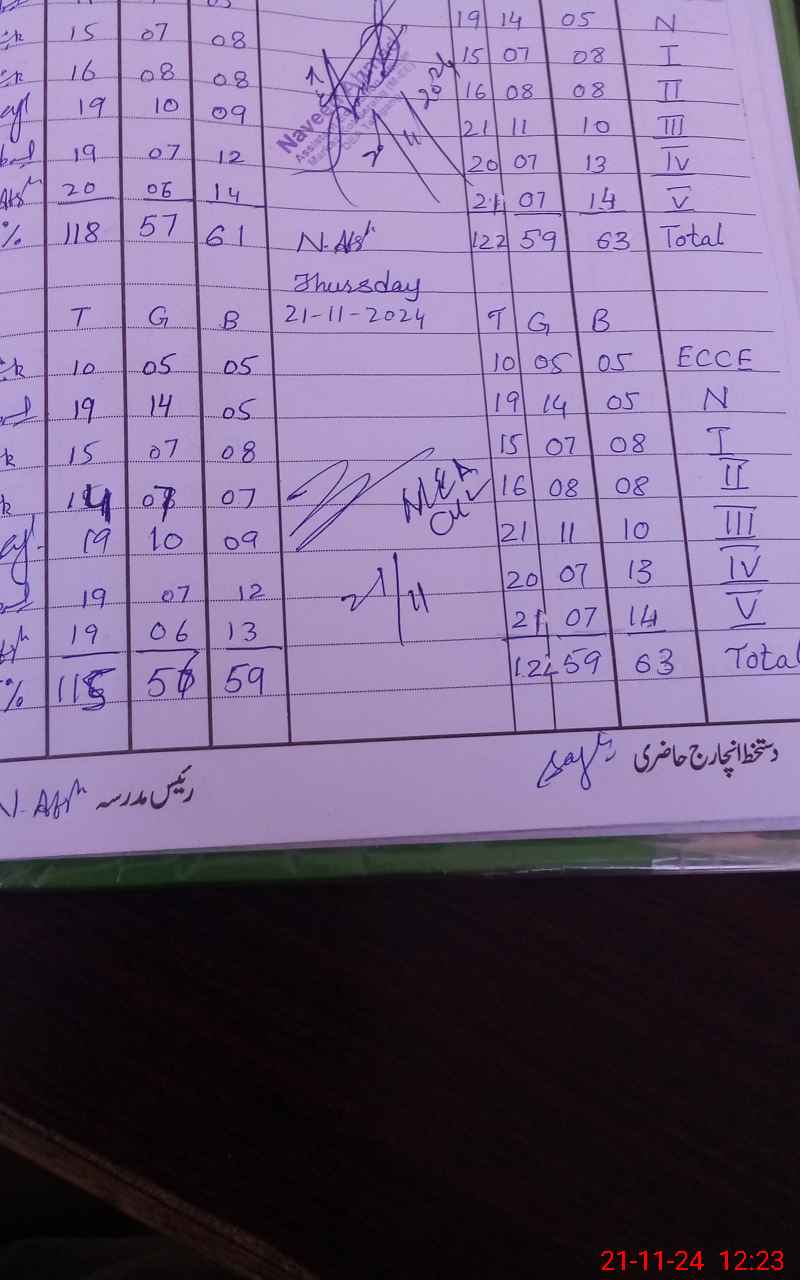 19 14 05 N
15 07 08 15 07 08 I
16 08 08 16 08 08 II
19 10 09 21 11 10 III
19 07 12 20 07 13 IV
20 06 14 21 07 14 V
% 118 57 61 N. Afsh 122 59 63 Total
Thursday
T G B 21-11-2024 T G B
10 05 05 10 05 05 ECCE
19 14 05 19 14 05 N
15 07 08 15 07 08 I
14 07 07 MEA 16 08 08 II
19 10 09 21 11 10 III
19 07 12 21/11 20 07 13 IV
19 06 13 21 07 14 V
% 115 56 59 122 59 63 Total
دستخط انچارج حاضری
رئیس مدرسہ N. Afsh
21-11-24 12:23